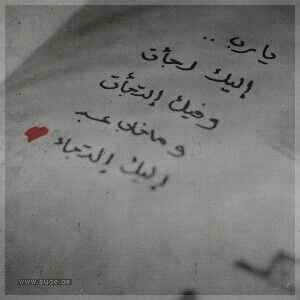 يارب ..
إليك لجأت
وفيك إلتجأت
وماخاب عبد
إليك إلتجاء
www.suae.ae